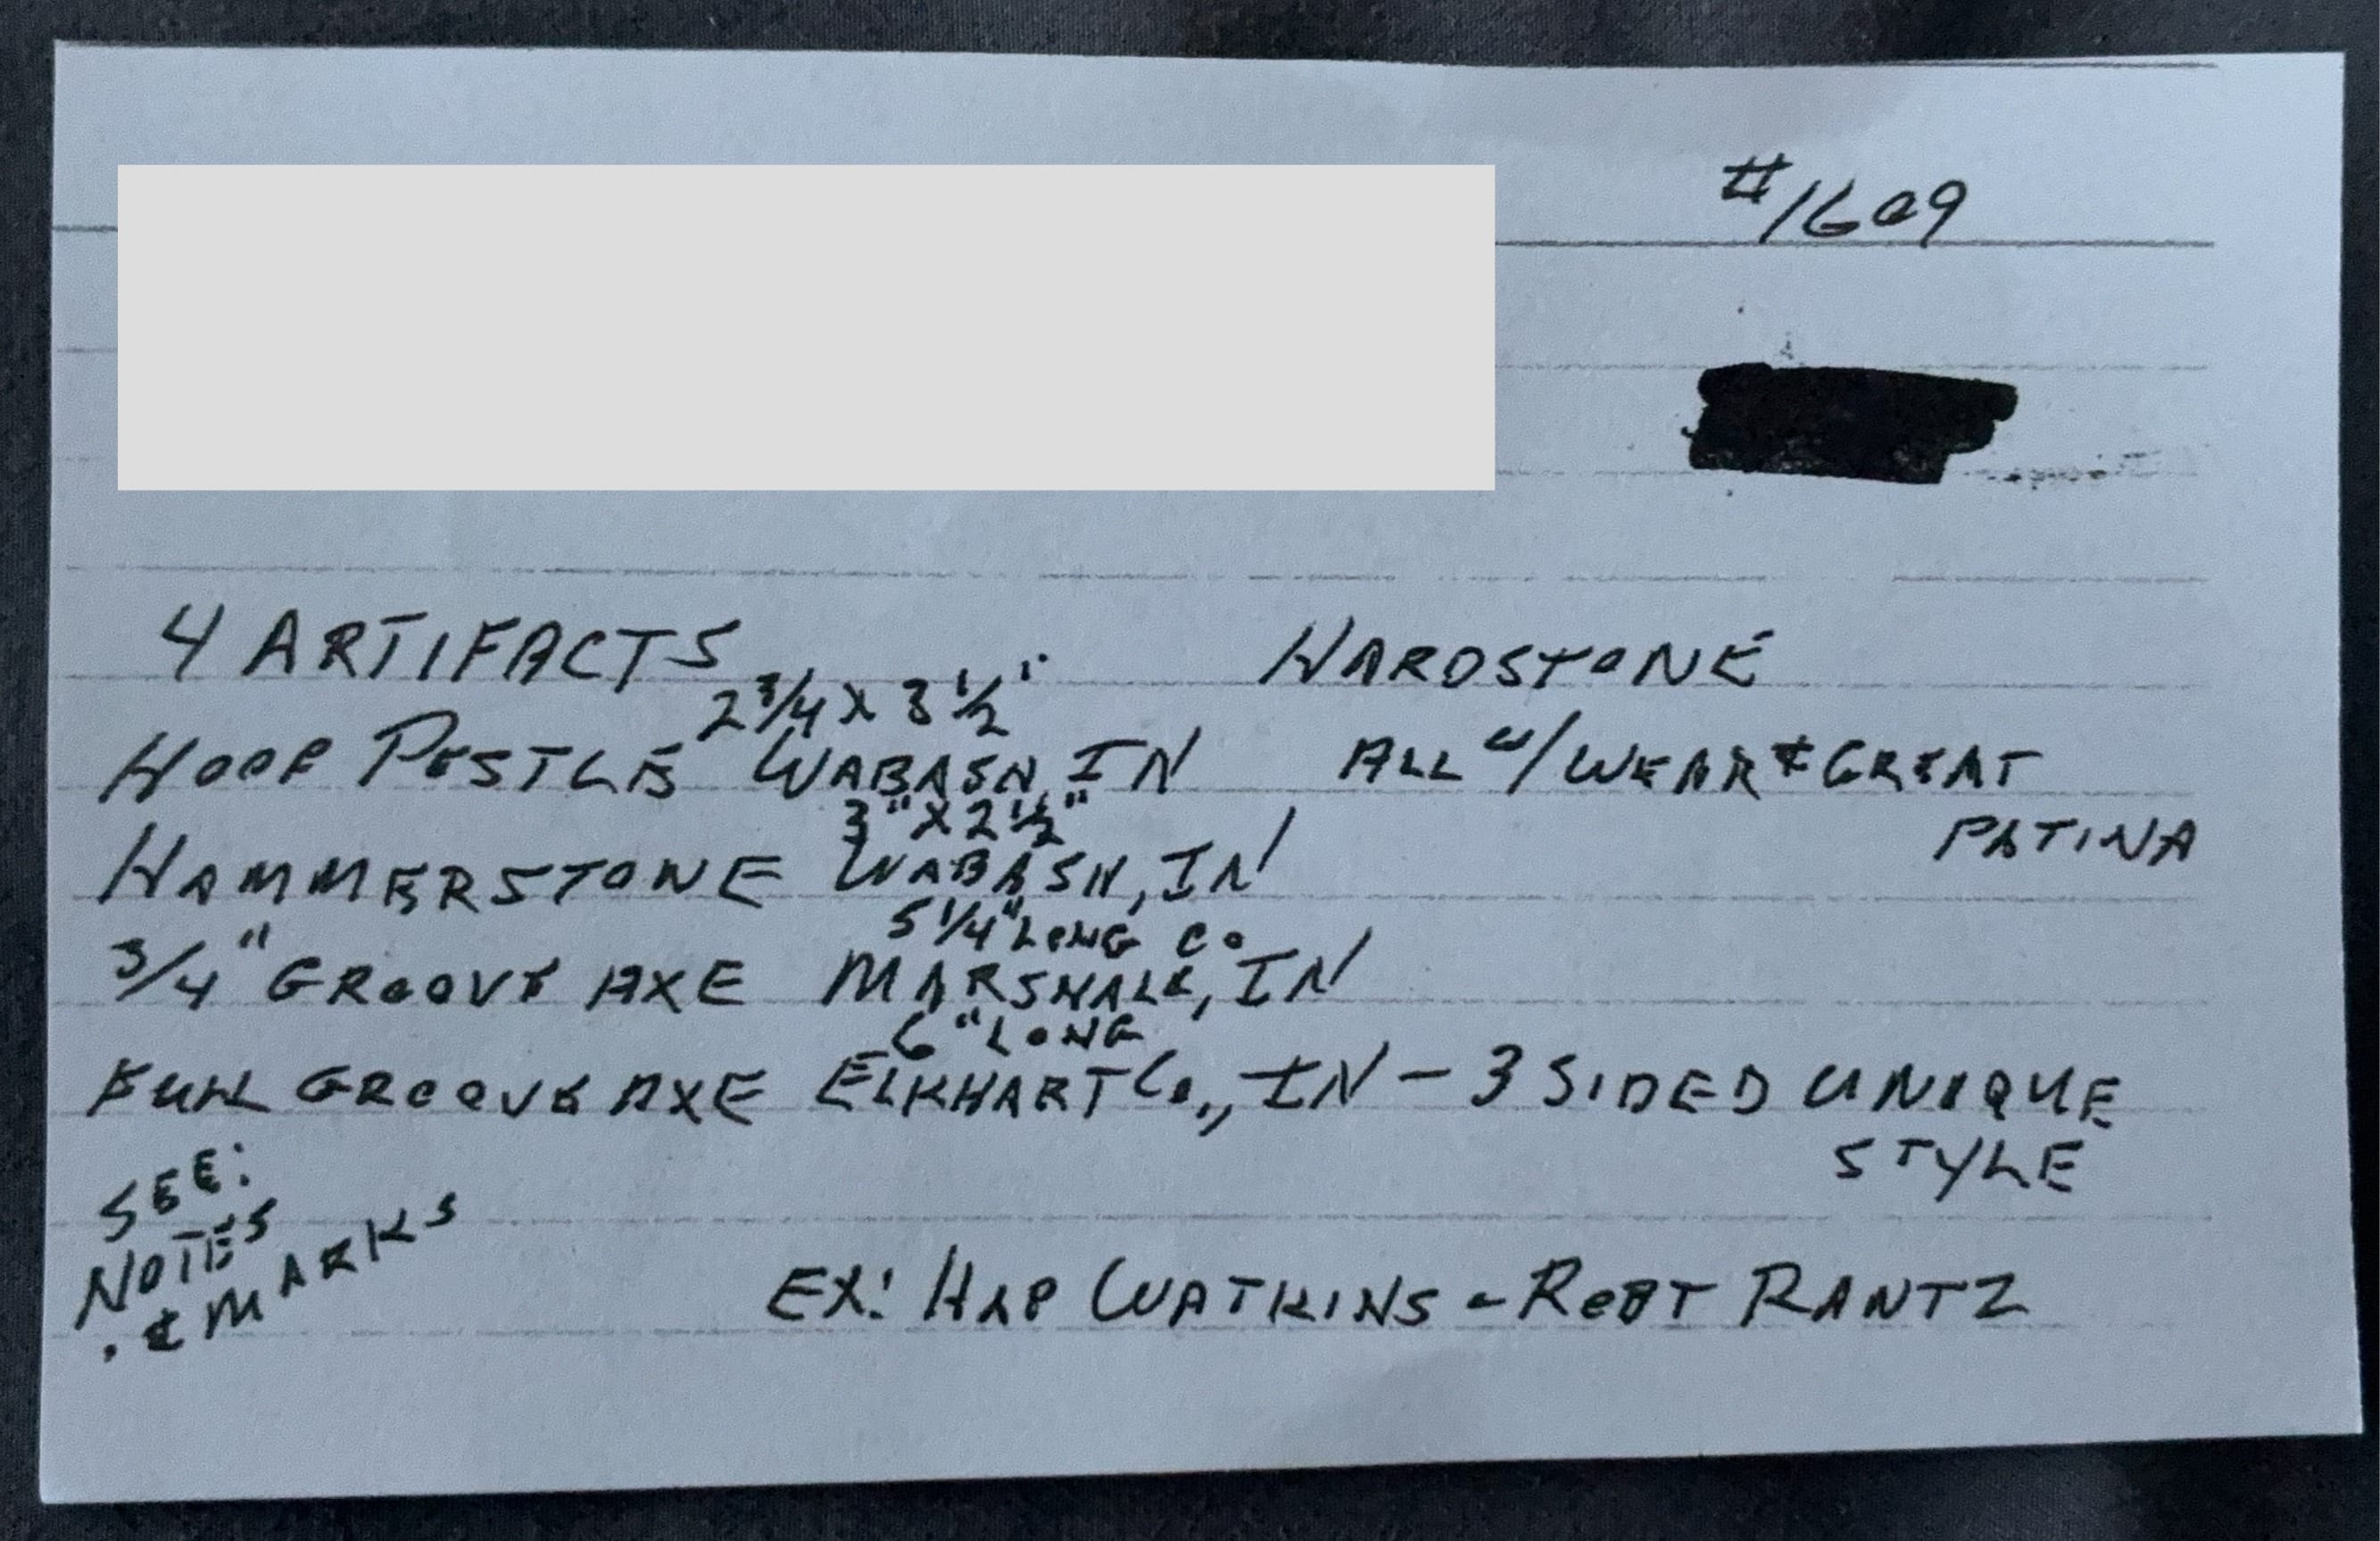 #1609
4 ARTIFACTS HARDSTONE
2 3/4 X 3 1/2"
HOOF PESTLE WABASH, IN ALL w/ WEAR & GREAT
PATINA
3" X 2 1/2"
HAMMERSTONE WABASH, IN
5 1/4" LONG CO
3/4" GROOVE AXE MARSHALL, IN
6" LONG
FULL GROOVE AXE ELKHART Co., IN - 3 SIDED UNIQUE
STYLE
SEE:
NOTES
& MARKS
EX: HAP WATKINS - ROBT RANTZ